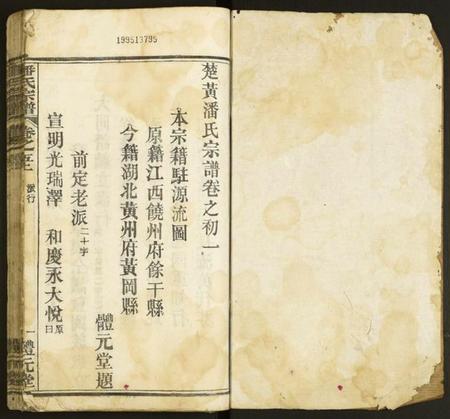 199513795
楚黃潘氏宗譜卷之初一
本宗籍駐源流圖
原籍江西饒州府餘干縣
今籍湖北黃州府黃岡縣
體元堂題
前定老派二十字
宣明光瑞澤 和慶永大悅原曰
潘氏宗譜
卷之
派行
一 體元堂